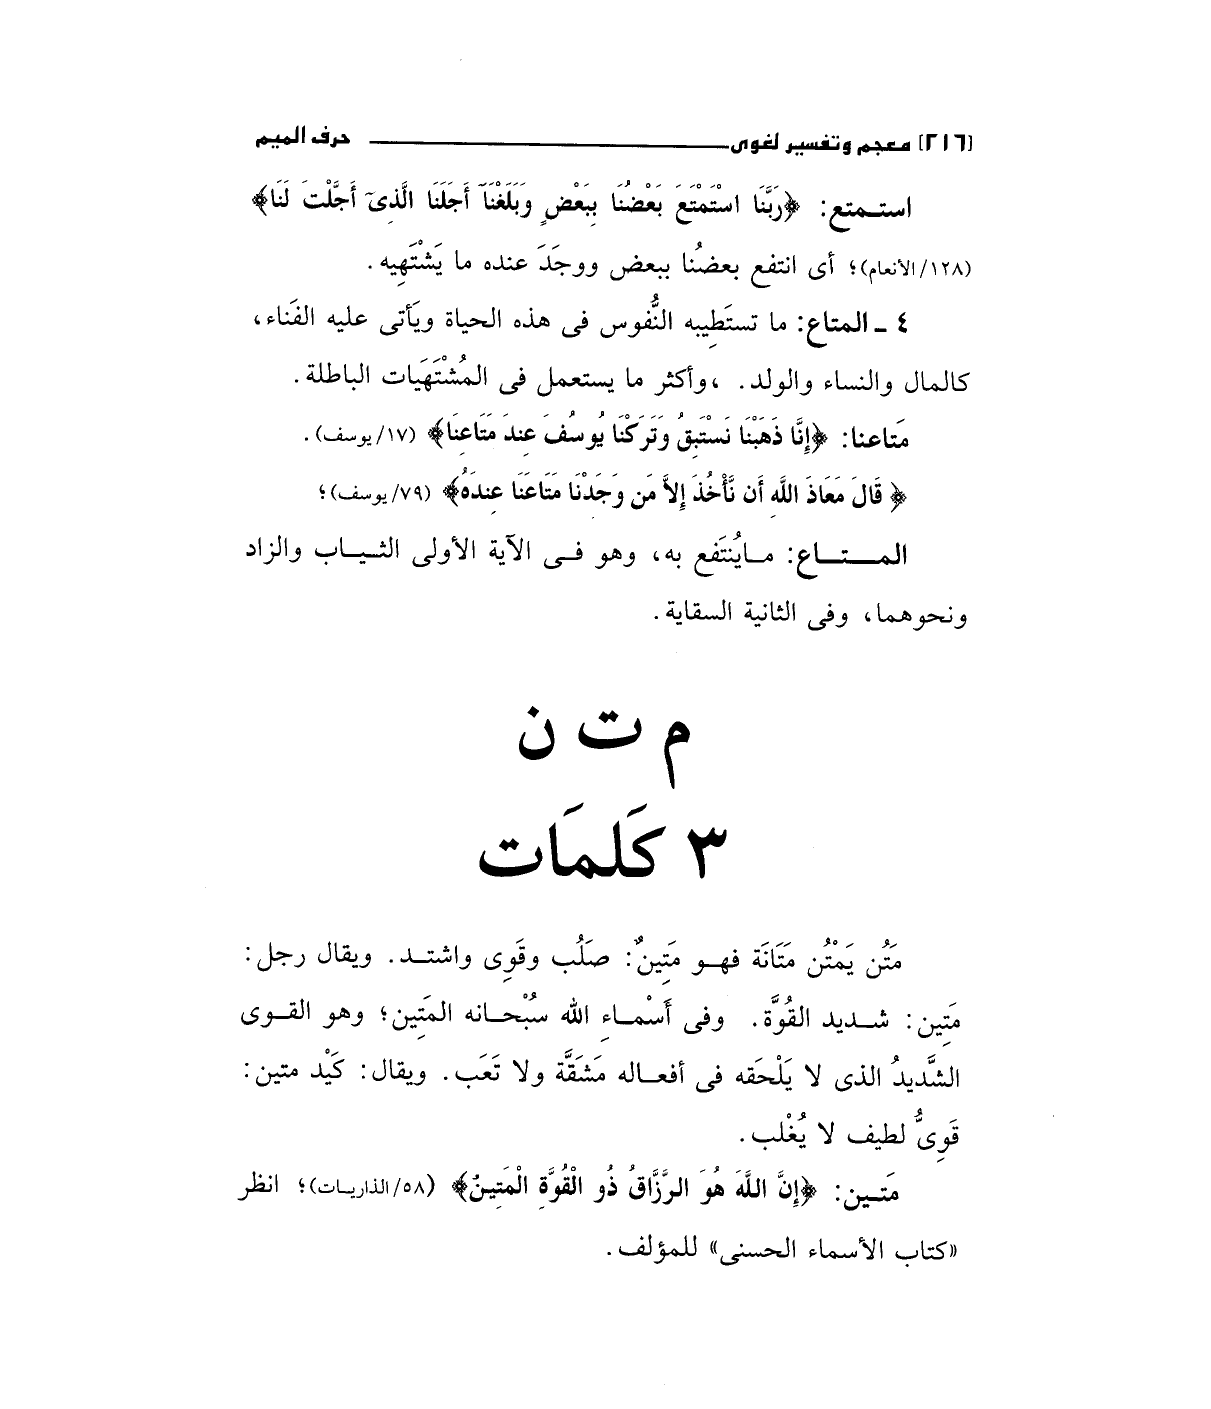 [٢١٦] معجم وتفسير لغوى ــــــــــــ حرف الميم
استـمتع: ﴿رَبَّنَا اسْتَمْتَعَ بَعْضُنَا بِبَعْضٍ وَبَلَغْنَآ أَجَلَنَا الَّذِىٓ أَجَّلْتَ لَنَا﴾
(١٢٨/الأنعام)؛ أى انتفع بعضُنا ببعض ووجَدَ عنده ما يَشْتَهِيه.
٤ ـ المتاع: ما تستَطِيبه النُّفوس فى هذه الحياة ويَأتى عليه الفَناء،
كالمال والنساء والولد. ،وأكثر ما يستعمل فى المُشْتَهَيات الباطلة.
مَتاعنا: ﴿إِنَّا ذَهَبْنَا نَسْتَبِقُ وَتَرَكْنَا يُوسُفَ عِندَ مَتَاعِنَا﴾ (١٧/يوسف).
﴿ قَالَ مَعَاذَ اللَّهِ أَن نَّأْخُذَ إِلاَّ مَن وَجَدْنَا مَتَاعَنَا عِندَهُ﴾ (٧٩/يوسف)؛
المـــتـــاع: مـايُنتَفع به، وهو فـى الآية الأولى الثـيـاب والزاد
ونحوهما، وفى الثانية السقاية.
م ت ن
٣ كَلمَات
مَتُن يَمْتُن مَتَانَة فهـو مَتِينٌ: صَلُب وقَوِى واشتـد. ويقال رجل:
مَتِين: شـديد القُوَّة. وفى أَسْمـاءِ الله سُبْحـانه المَتِين؛ وهو القـوى
الشَّديدُ الذى لا يَلْحَقه فى أفعـاله مَشَقَّة ولا تَعَب. ويقال: كَيْد متين:
قَوِىُّ لطيف لا يُغْلب.
مَتـين: ﴿إِنَّ اللَّهَ هُوَ الرَّزَّاقُ ذُو الْقُوَّةِ الْمَتِينُ﴾ (٥٨/الذاريـات)؛ انظر
«كتاب الأسماء الحسنى» للمؤلف.